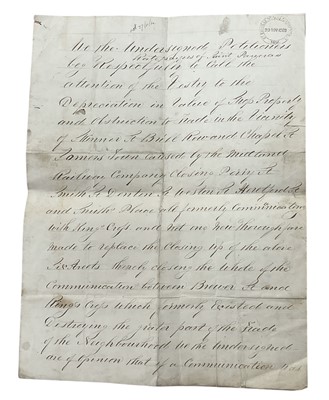 We the Undersigned Petitioners
beg Respectfully to Call the
attention of the Vestry to the
Depreciation in Value of Shop Property
and Obstruction to Trade in the Vicinity
of Skinner St Brill Row and Chapel St
Somers Town Caused by the Midland
Railway Company Closing Perry St
Smith St Denton St Weston St Hertford St
and Smith Place all formerly Communicating
with Kings Cross and not one new thorougfare
made to replace the Closing up of the above
Six Streets thereby closing the whole of the
Communication between Brewer St and
Kings Cross which formerly Existed and
Destroying the greater part of the Trade
of the Neighbourhood We the Undersigned
are of Opinion that if a Communication was